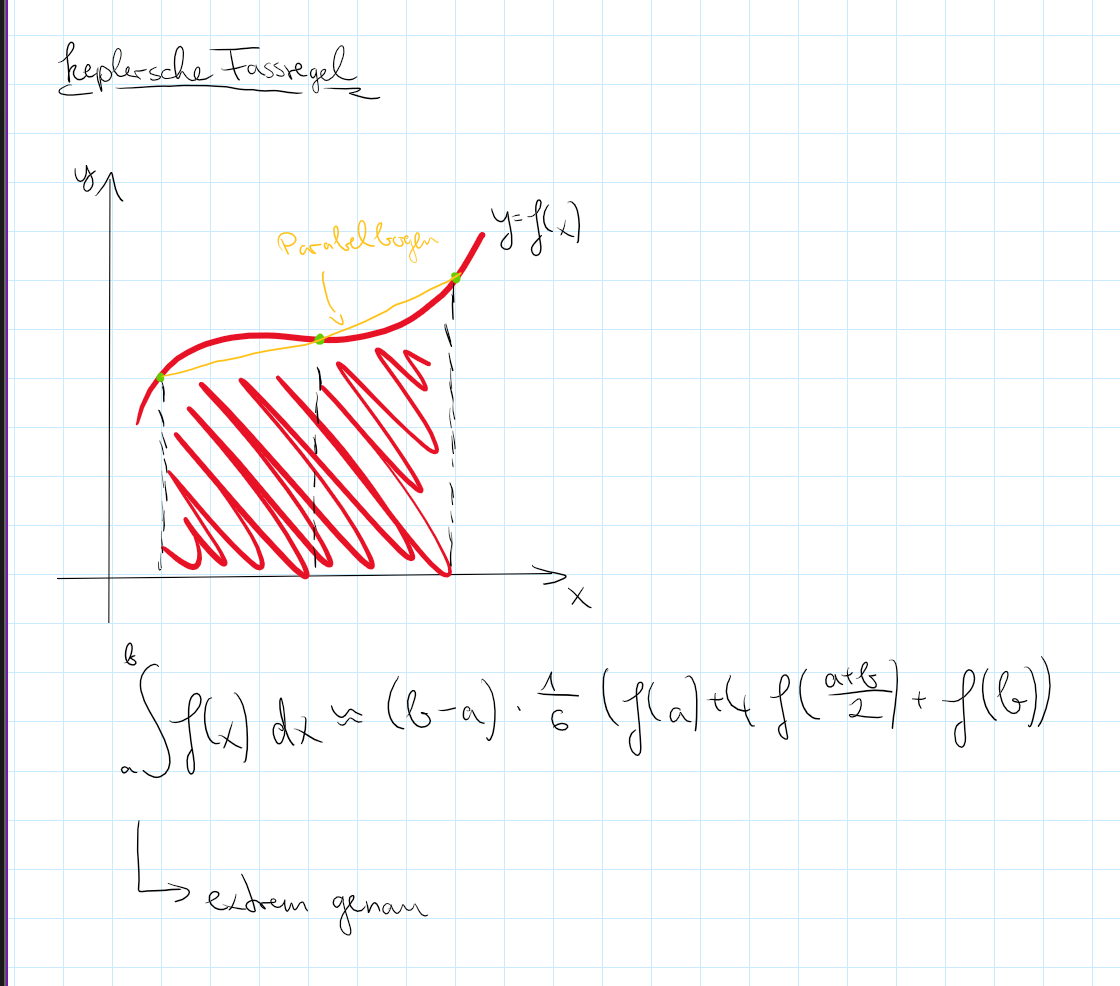 keplersche Fassregel
y
y=f(x)
Parabelbogen
x
∫_a^b f(x) dx ≈ (b-a) · 1/6 (f(a)+4 f((a+b)/2) + f(b))
extrem genau